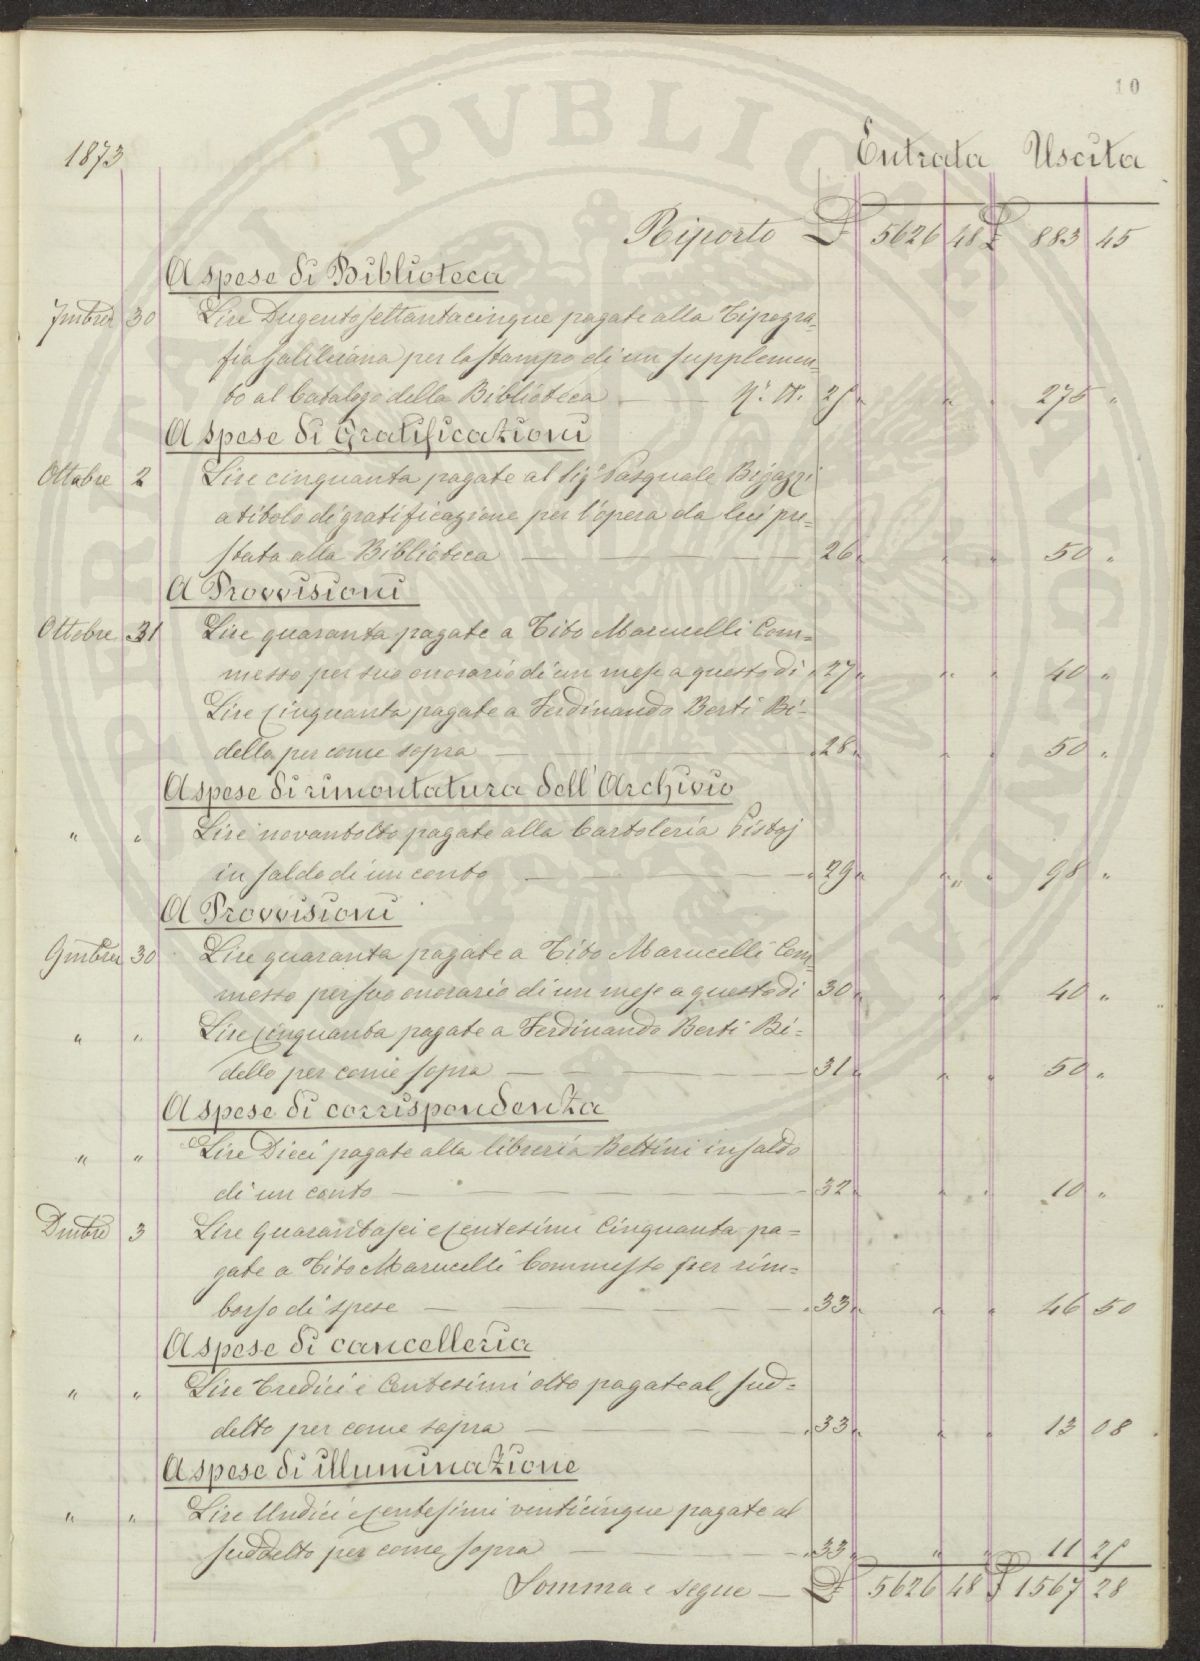 10
1873
Entrata Uscita
Riporto £ 5626 48 £ 883 45
A spese di Biblioteca
7mbre 30 Lire Dugentosettantacinque pagate alla Tipogra-
fia Galileiana per la stampa di un supplemen-
to al Catalogo della Biblioteca — N.i Ct. 25 " " " 275 "
A spese di Gratificazioni
Ottobre 2 Lire cinquanta pagate al Sig.e Pasquale Bigazzi
a titolo di gratificazione per l'opera da lui pre=
stata alla Biblioteca — — 26 " " " 50 "
A Provvisioni
Ottobre 31 Lire quaranta pagate a Tito Marucelli Com=
messo per suo onorario di un mese a questo dì " 27 " " " 40 "
Lire Cinquanta pagate a Ferdinando Berti Bi-
dello per come sopra — — — " 28 " " " 50 "
A spese di rimontatura dell'Archivio
" " Lire novantotto pagate alla Cartoleria Pistoj
in saldo di un conto — — — " 29 " " " 98 "
A Provvisioni
9mbre 30 Lire quaranta pagate a Tito Marucelli Com=
messo per suo onorario di un mese a questo dì 30 " " " 40 "
" " Lire Cinquanta pagate a Ferdinando Berti Bi=
dello per come sopra — — — 31 " " " 50 "
A spese di corrispondenza
" " Lire Dieci pagate alla libreria Bettini in saldo
di un conto — — — — 32 " " " 10 "
Dmbre 3 Lire Quarantasei e Centesimi Cinquanta pa=
gate a Tito Marucelli Commesso per rim=
borso di spese — — — " 33 " " " 46 50
A spese di cancelleria
" " Lire Tredici e Centesimi otto pagate al sud=
detto per come sopra — — — " 33 " " " 13 08
A spese di illuminazione
" " Lire Undici e Centesimi venticinque pagate al
suddetto per come sopra — — " 33 " " " 11 25
Somma e segue — £ 5626 48 £ 1567 28